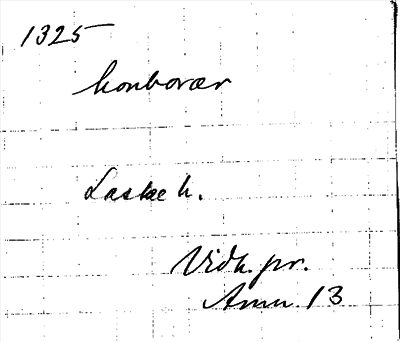 1325
honborær
Laskeh.
Vidh. pr.
Anm. 13